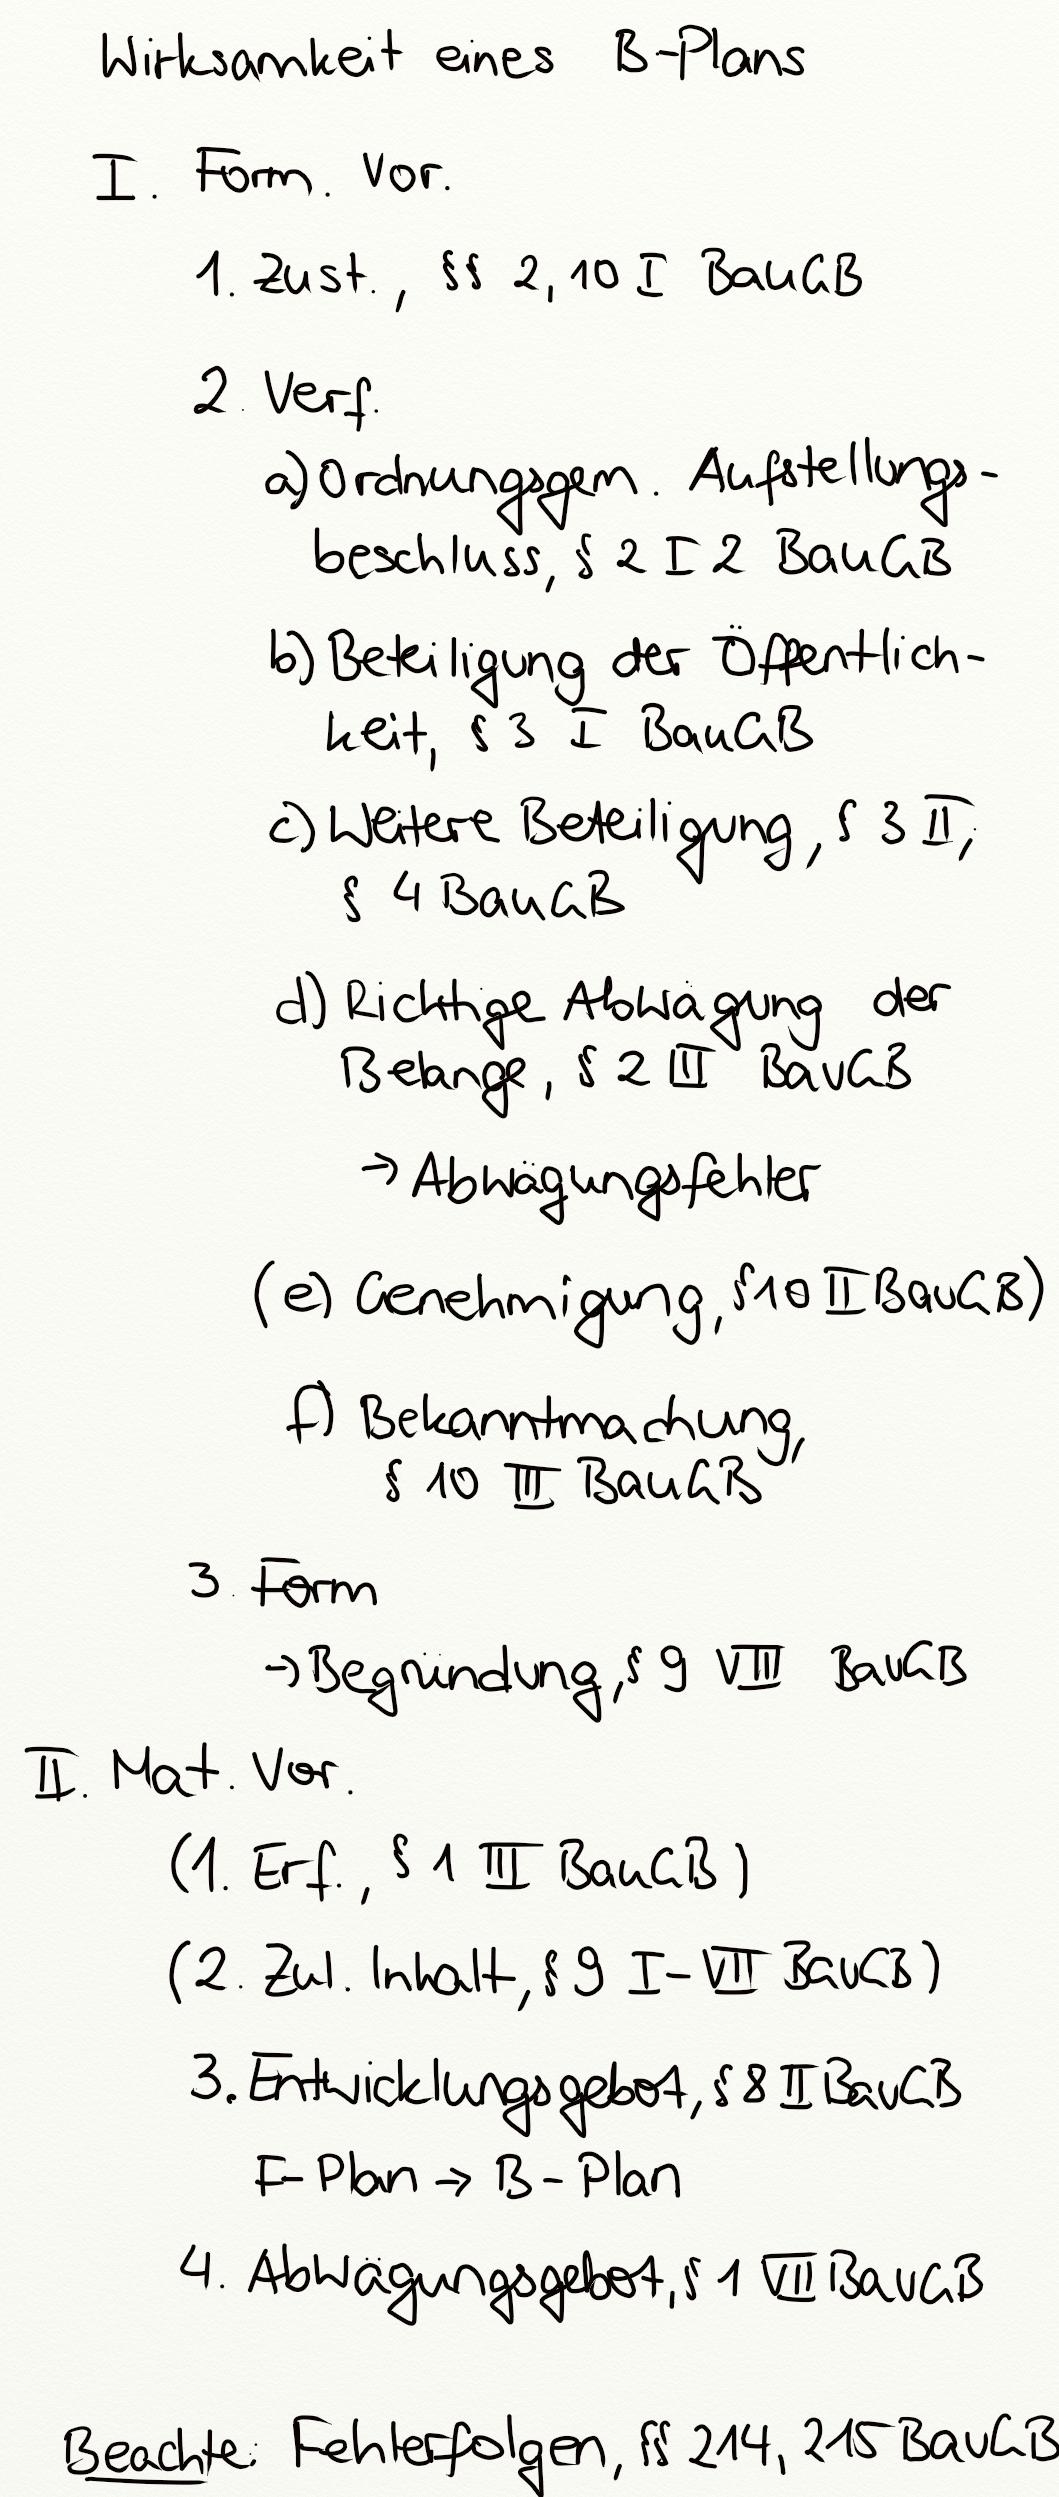 Wirksamkeit eines B-Plans
I. Form. Vor.
1. Zust., §§ 2, 10 I BauGB
2. Verf.
a) Ordnungsgem. Aufstellungs-
beschluss, § 2 I 2 BauGB
b) Beteiligung der Öffentlich-
keit, § 3 I BauGB
c) Weitere Beteiligung, § 3 II,
§ 4 BauGB
d) Richtige Abwägung der
Belange, § 2 III BauGB
→ Abwägungsfehler
(e) Genehmigung, § 10 II BauGB)
f) Bekanntmachung,
§ 10 III BauGB
3. Form
→ Begründung, § 9 VIII BauGB
II. Mat. Vor.
(1. Erf., § 1 III BauGB)
(2. Zul. Inhalt, § 9 I-VII BauGB)
3. Entwicklungsgebot, § 8 II BauGB
F-Plan → B-Plan
4. Abwägungsgebot, § 1 VII BauGB
Beachte: Fehlerfolgen, §§ 214, 215 BauGB